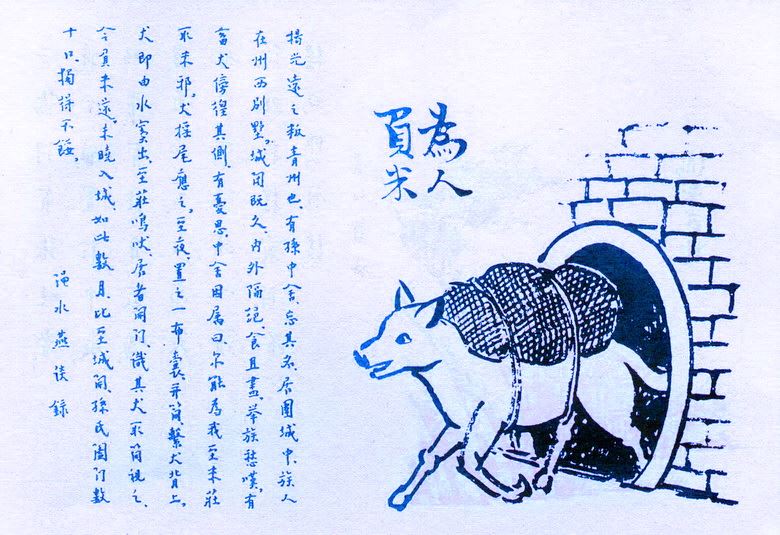 為人
買米
楊光遠之叛青州也、有孫中舍、忘其名、居圍城中、族人
在州西別墅。城閉既久、內外隔絕、食且盡、举族愁嘆、有
畜犬傍徨其側、有憂思、中舍因屬曰、尔能為我至米莊
取米邪。犬摇尾應之。至夜、置之一布囊、并简繫犬背上。
犬即由水竇出、至莊鳴吠、居者開门、識其犬、取简視之、
令負米還、未曉入城、如此數月、比至城開、孫氏闔门數
十口、獨得不餒。
澠水燕談錄